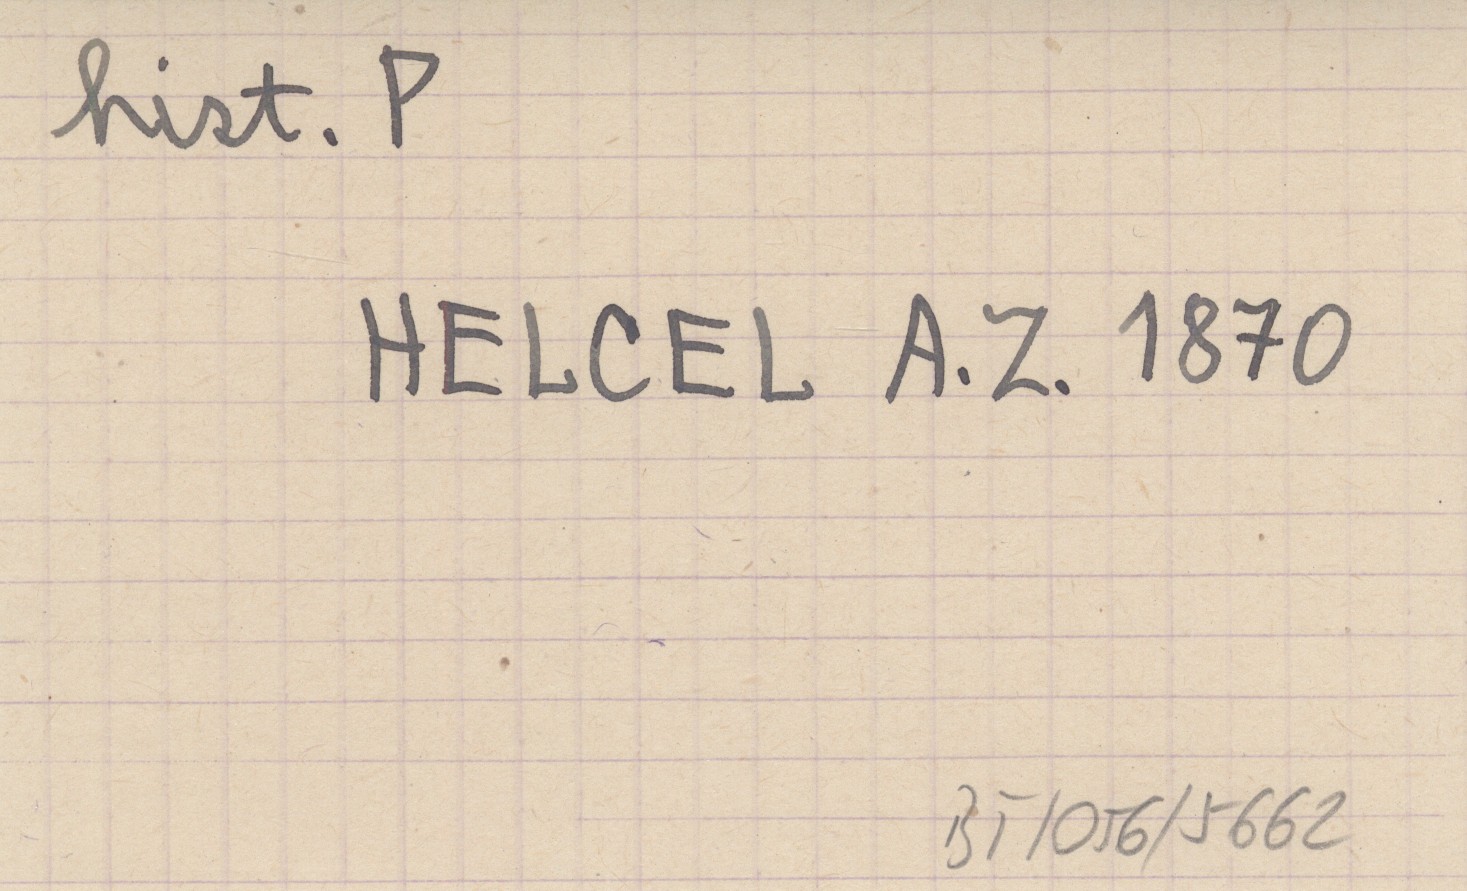 hist. P
HELCEL A.Z. 1870
BT/056/5662